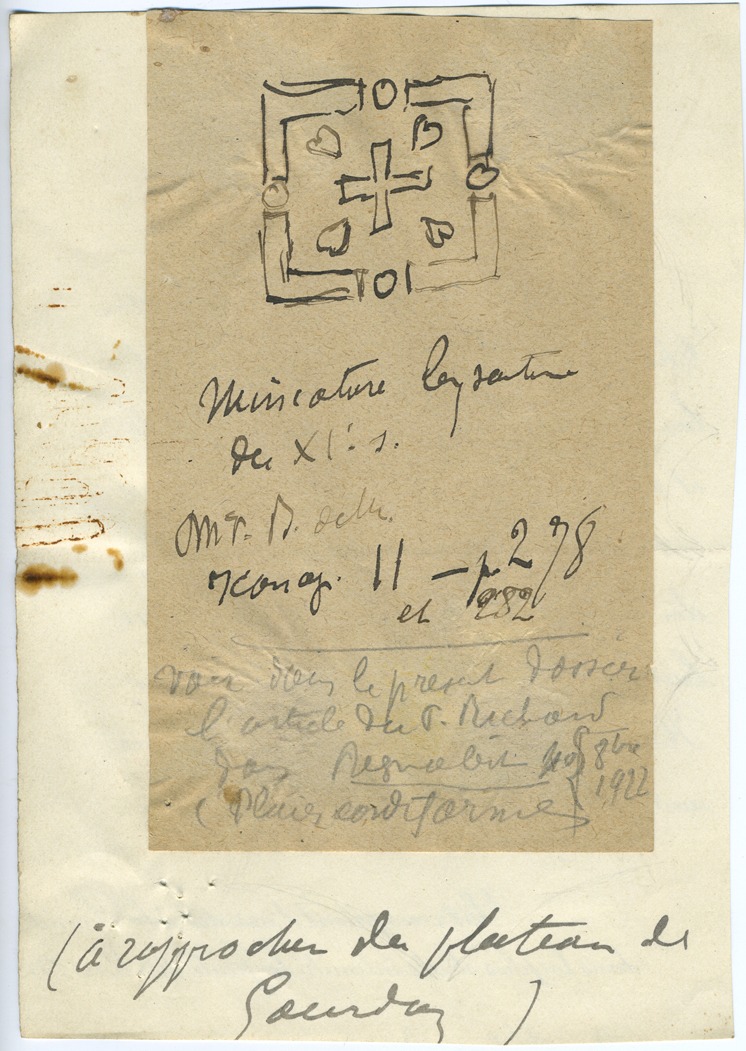 Miniature bysantine
du XIe. s.
Mr. B. de M.
Iconog. II – p 278
et 282
voir dans le present dossier
l'article du P. Richard
dans Regnabit 8bre
1922
(Plaies cordiformes)
(à rapprocher du plateau de
Gourdon)